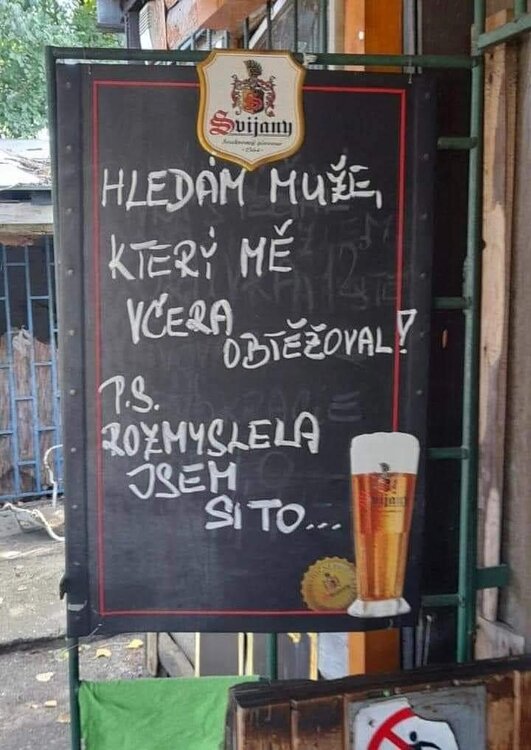 Svijany
HLEDÁM MUŽE,
KTERÝ MĚ
VČERA
OBTĚŽOVAL!
P.S.
ROZMYSLELA
JSEM
SI TO...
Svijany